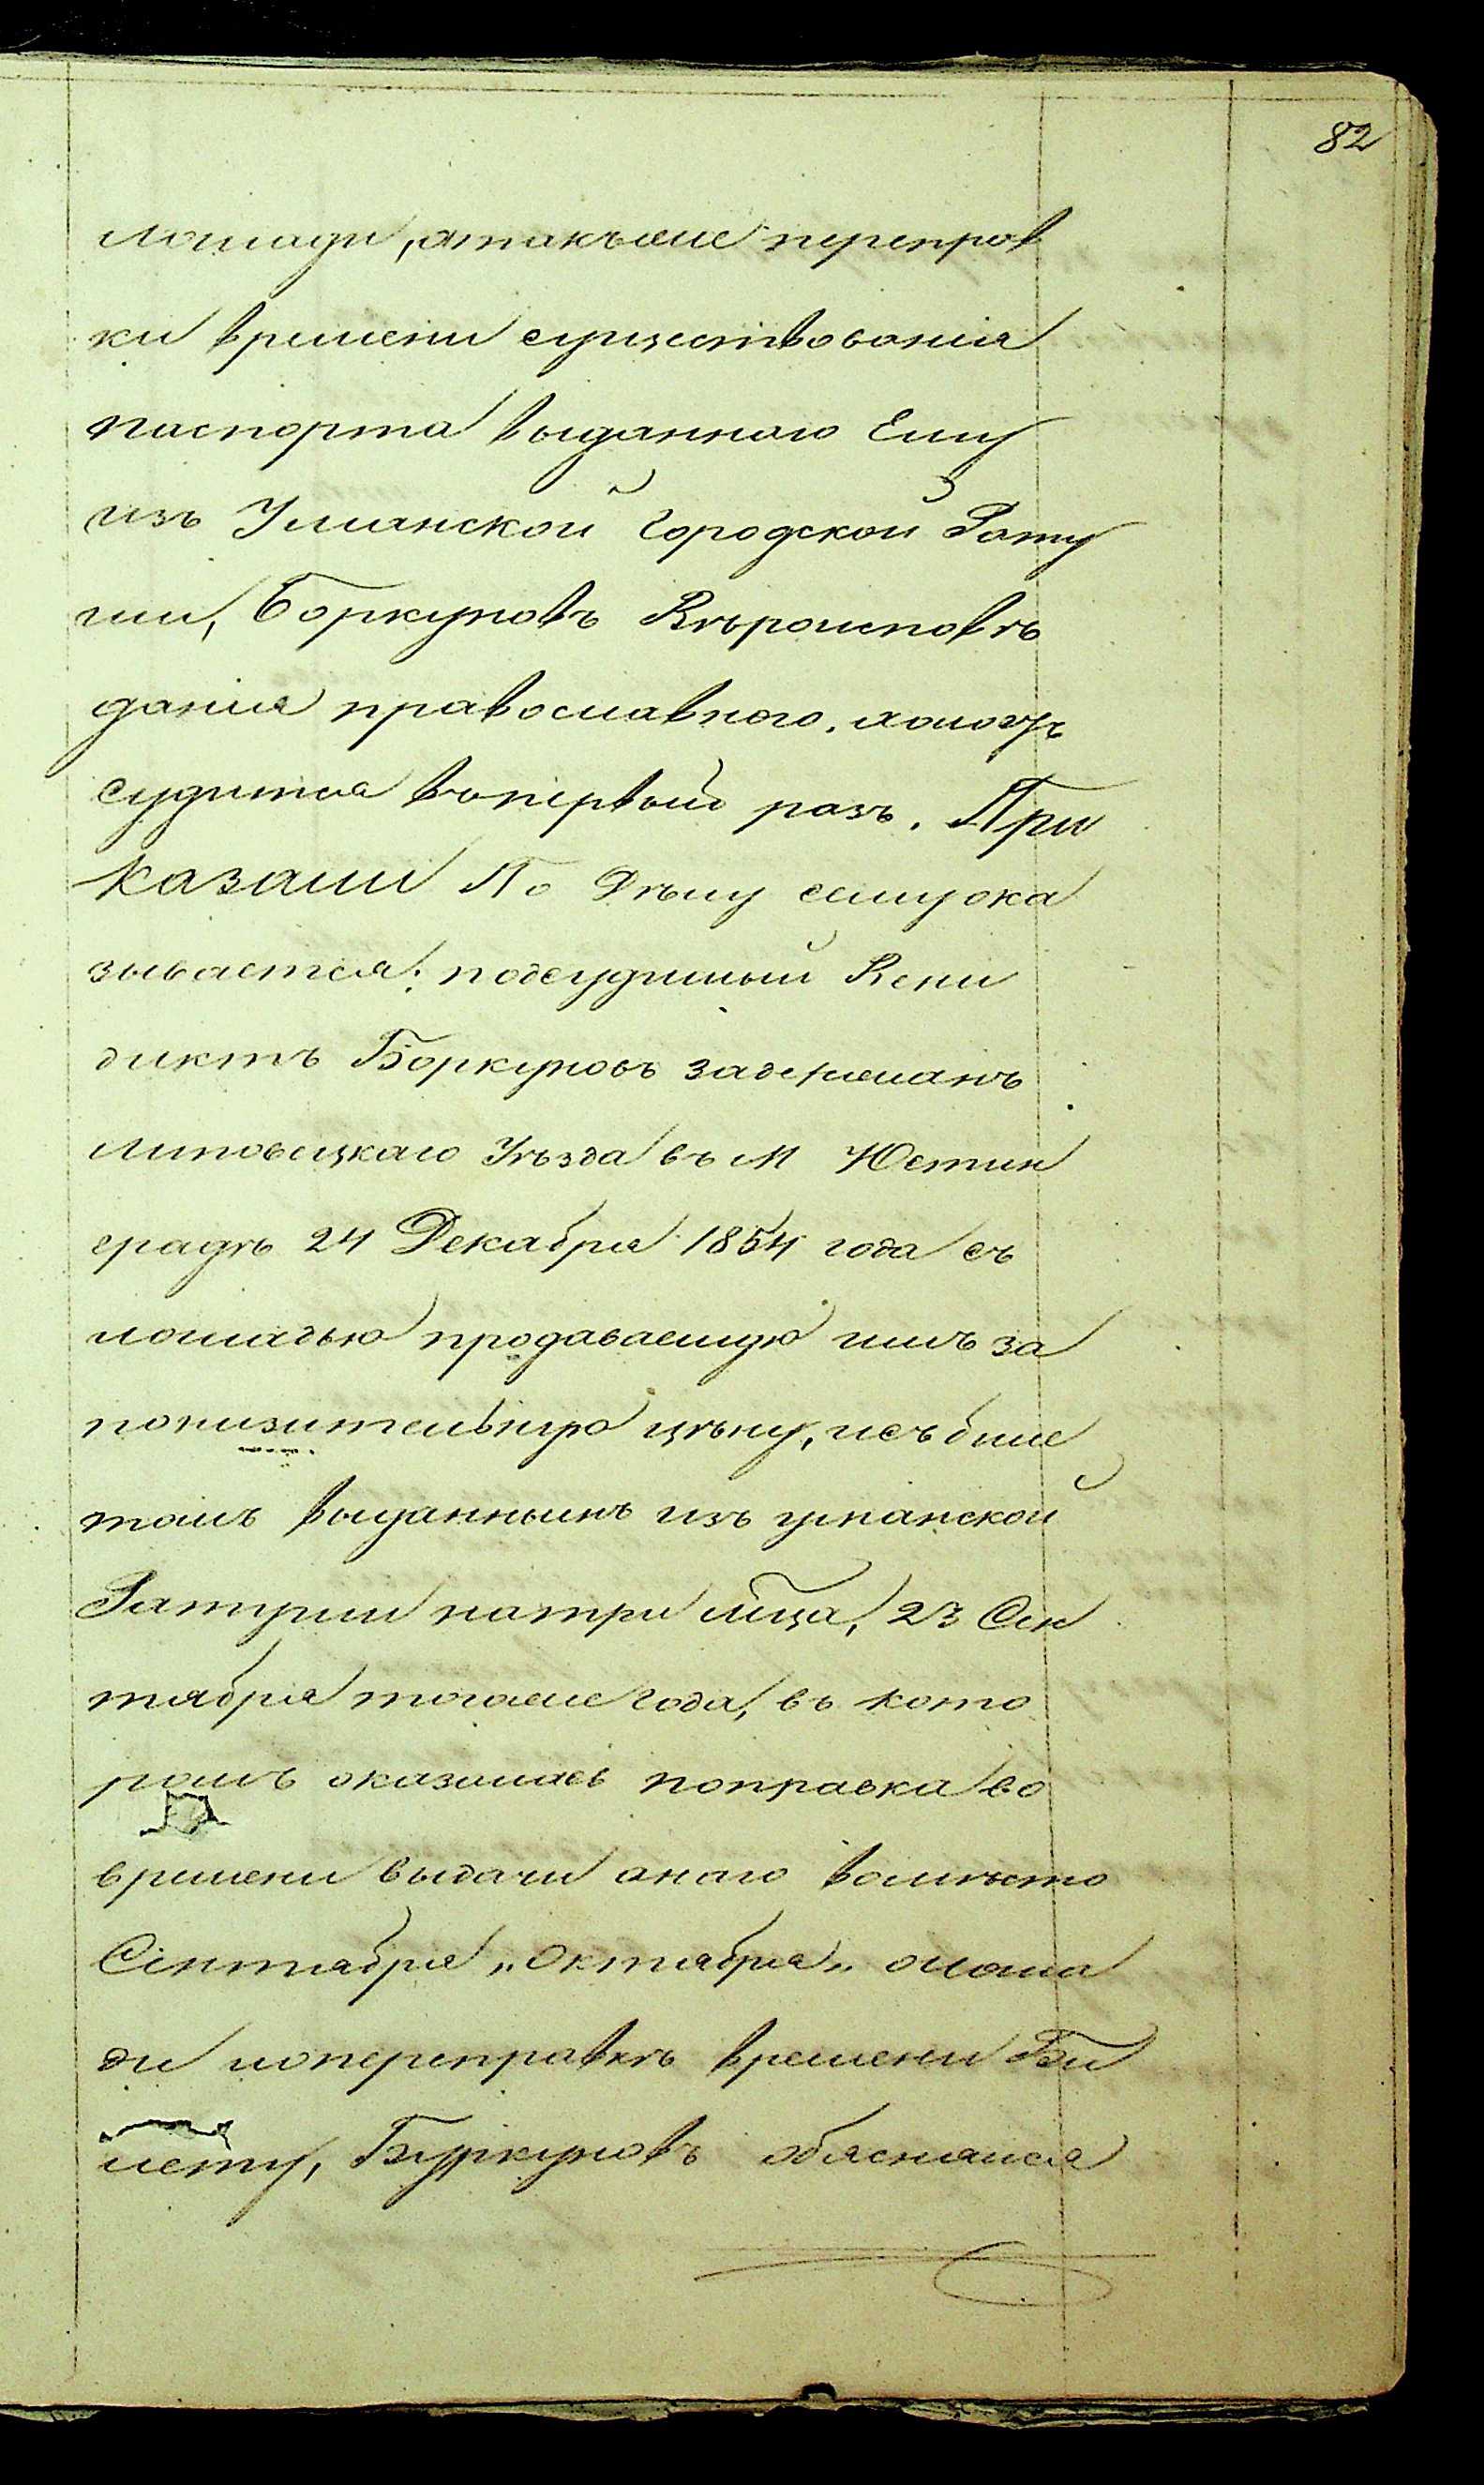 82
лошади, атакъже переправ
ки времени существованія
паспорта выданного Ему
изъ Уманской Городской Рату
ши, Боркуновъ Вѣроисповѣ
данія православного, холостъ
судится вопервый разъ. При
казали По Дѣлу сему ока
зывается: подсудимый Вени
диктъ Боркуновъ задержанъ
липовецкаго Уѣзда въ М Юстин
градѣ 24 Декабря 1854 года съ
лошадью продаваемую имъ за
понизительную цѣну, исъ биле
томъ выданнымъ изъ уманской
Ратуши натри мца, 23 Сен
тября тогоже года, въ кото
ромъ оказалась поправка во
времени выдачи онаго вомѣсто
Сентября „Октября„ олоша
ди ипереправкѣ времени Би
лету, Буркуновъ обяснялся